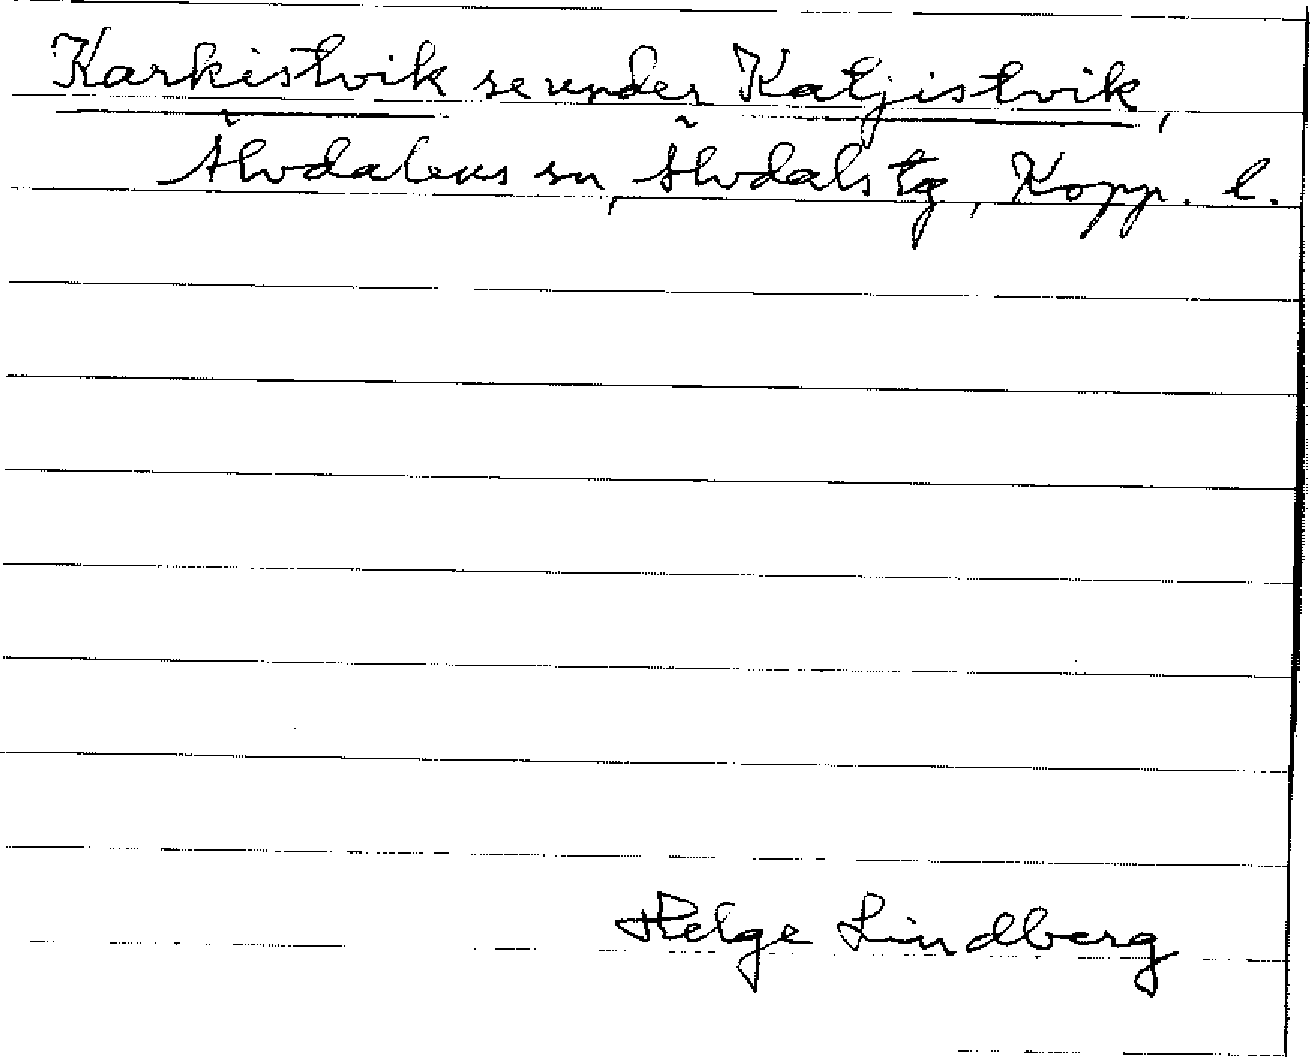 Karkistvik se under Katjistvik,
Älvdalens sn, Älvdals tg, Kopp. l.
Helge Lindberg